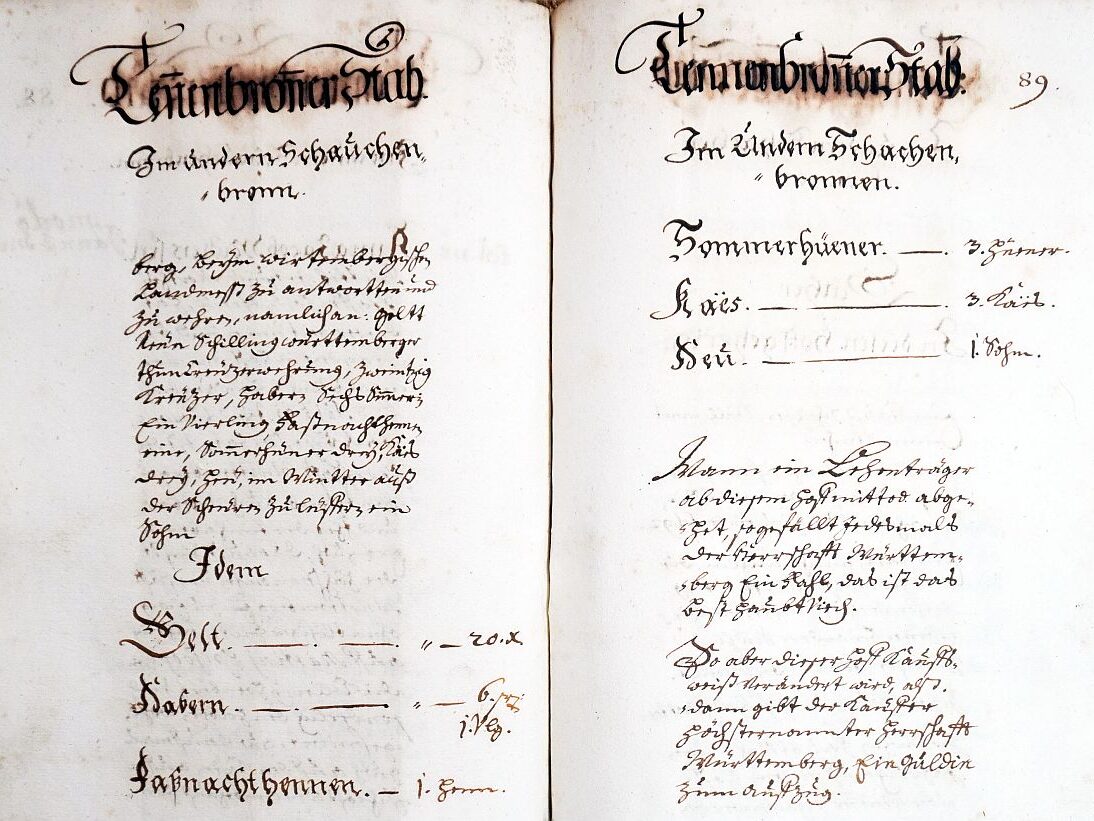 Tennenbronner Stab.
Im Andern Schauchen„
„bronn.
berg, beym wirtembergischen
Landmesß zu antwortten und
zu wehren, namlichen: Geltt
Neün Schilling württemberger
thun Creützerwehrung, zweintzig
Kreützer, habern Sechs Simeri
Ein Vierling, Faßnachthenn
eine, Sommerhüner drey, Käs
drey, Heü, im Wintter auß
der Scheuren zu lüffern ein
Sohm
Idem
Gelt. — . — „ — 20. x
Habern. — . — „ — 6. sri:
1. Vlg.
Faßnachthennen. — 1. henn.
Tennenbronner Stab: 89.
Im Andern Schachen„
„bronnen.
Sommerhüener. — . 3. hüener.
Käës. — . 3. Käis.
Heü. — 1. Sohm.
Wann ein Lehenträger
ab diesem Hoff mit tod abge„
„het, so gefällt jedesmals
der Herrschafft Württem„
„berg Ein Fahl, das ist das
best haubt Viech.
So aber dieser Hoff Kauffs„
weiß verändert wird, alß„
„dann gibt der Kauffer
höchsternannter Herrschafft
Württemberg, Ein Guldin
zum auffzug.